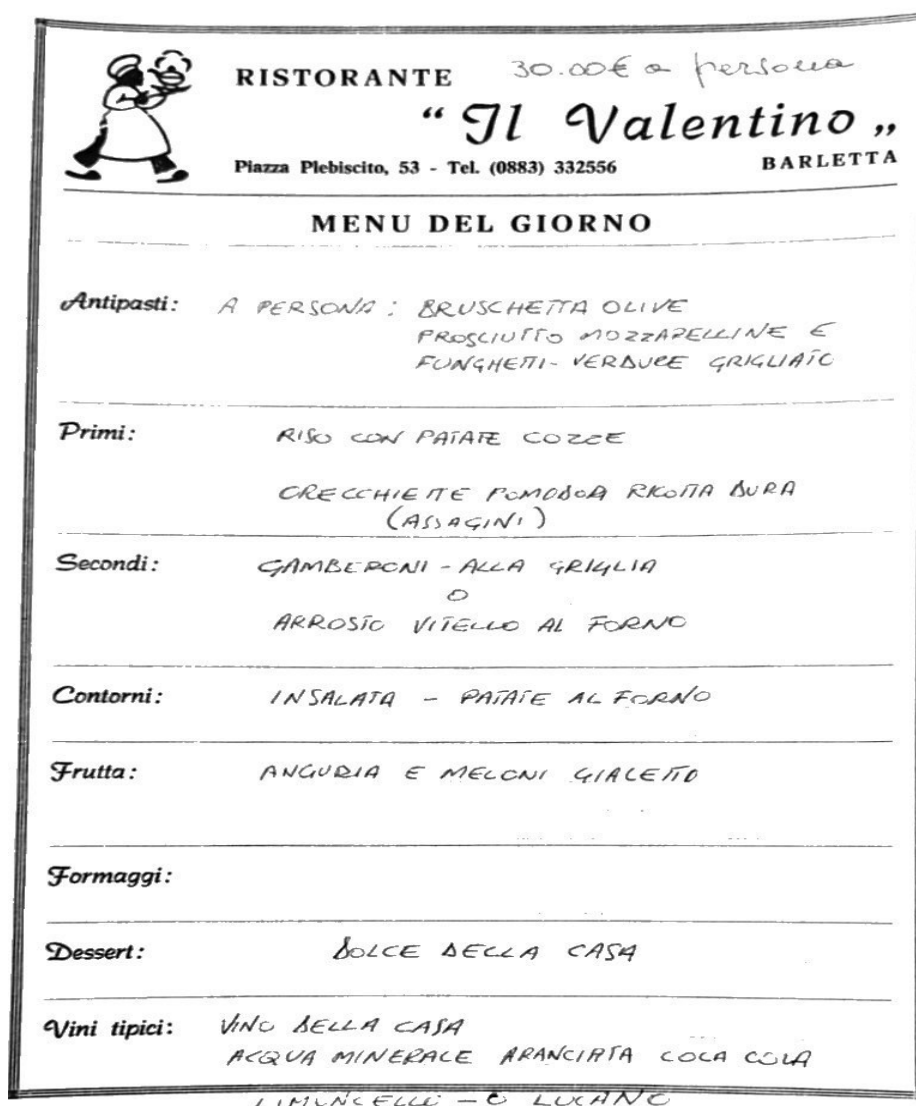 RISTORANTE 30.00€ a persona
“ Il Valentino „
Piazza Plebiscito, 53 - Tel. (0883) 332556 BARLETTA
MENU DEL GIORNO
Antipasti: A PERSONA : BRUSCHETTA OLIVE
PROSCIUTTO MOZZARELLINE E
FUNGHETTI - VERDURE GRIGLIATO
Primi: RISO CON PATATE COZZE
ORECCHIETTE POMODOR RICOTTA DURA
(ASSAGINI)
Secondi: GAMBERONI - ALLA GRIGLIA
O
ARROSTO VITELLO AL FORNO
Contorni: INSALATA - PATATE AL FORNO
Frutta: ANGURIA E MELONI GIALETTO
Formaggi:
Dessert: DOLCE DELLA CASA
Vini tipici: VINO DELLA CASA
ACQUA MINERALE ARANCIATA COCA COLA
LIMUNCELLO - O LUCANO